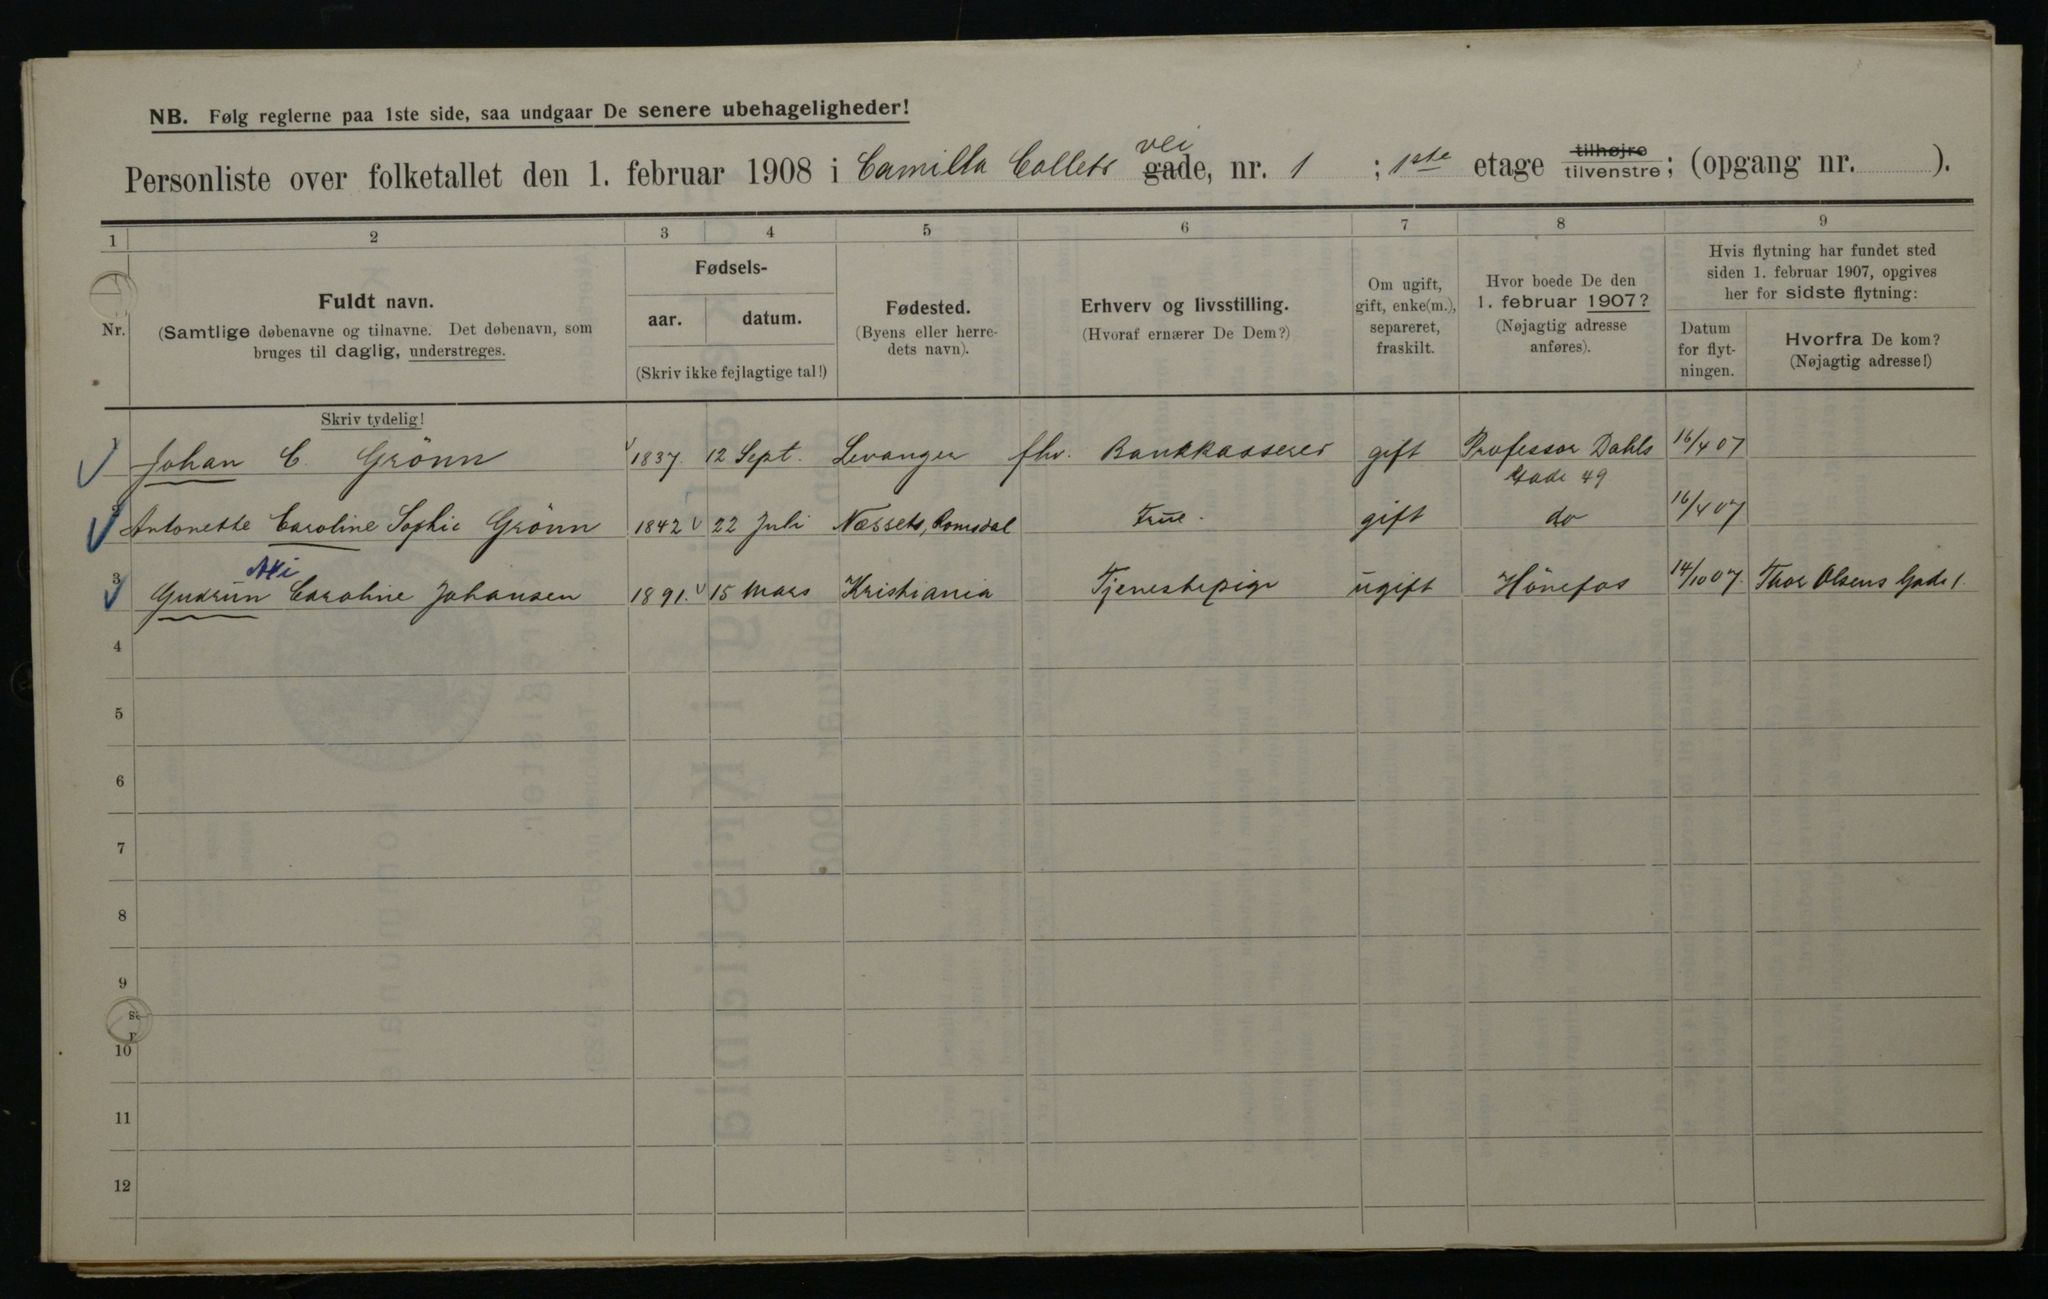 NB. Følg reglerne paa 1ste side, saa undgaar De senere ubehageligheder!
vei
Personliste over folketallet den 1. februar 1908 i Camilla Collets gade, nr. 1 ; 1ste etage tilhøjre tilvenstre; (opgang nr. ).
1 2 3 4 5 6 7 8 9
Nr.
Fuldt navn.
(Samtlige døbenavne og tilnavne. Det døbenavn, som
bruges til daglig, understreges.
Skriv tydelig!
Fødsels-
aar. datum.
(Skriv ikke fejlagtige tal!)
Fødested.
(Byens eller herre-
dets navn).
Erhverv og livsstilling.
(Hvoraf ernærer De Dem?)
Om ugift,
gift, enke(m.),
separeret,
fraskilt.
Hvor boede De den
1. februar 1907?
(Nøjagtig adresse
anføres).
Hvis flytning har fundet sted
siden 1. februar 1907, opgives
her for sidste flytning:
Datum
for flyt-
ningen.
Hvorfra De kom?
(Nøjagtig adresse!)
Johan C. Grönn 1837. 12 Sept. Levanger fhv. Bankkasserer gift Professor Dahls 16/4 07
Gade 49
Antonette Caroline Sophie Grönn 1842 22 Juli Næssets, Romsdal Frue. gift do 16/4 07
3 Gudrun Caroline Johansen 1891. 15 Mars Kristiania Tjenestepige ugift Hönefos 14/10 07. Thor Olsens Gade 1.
4
5
6
7
8
9
10
11
12